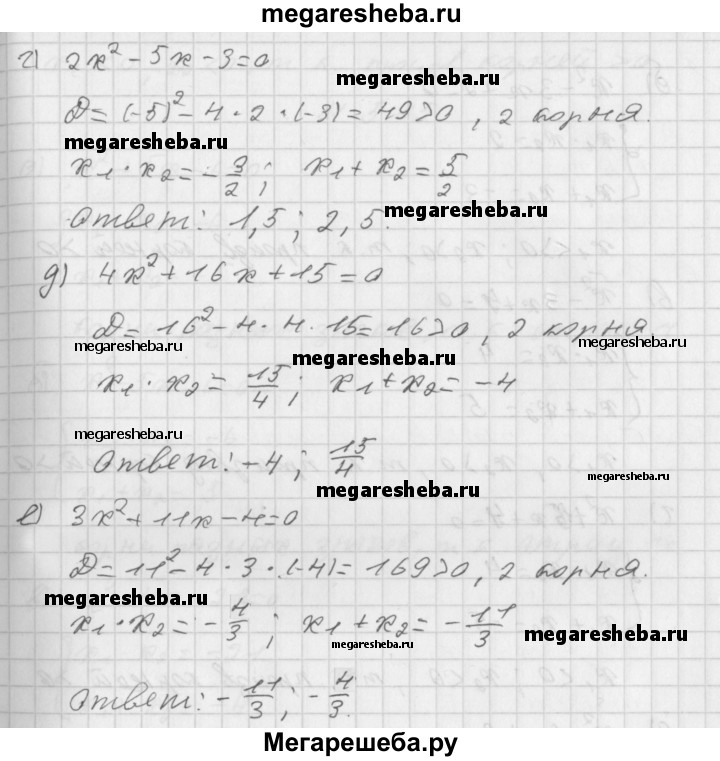 megaresheba.ru
г) 2x² - 5x - 3 = 0
megaresheba.ru
D = (-5)² - 4 · 2 · (-3) = 49 > 0 , 2 корня.
megaresheba.ru
x₁ · x₂ = - 3/2 ; x₁ + x₂ = 5/2
Ответ: 1,5 ; 2,5. megaresheba.ru
д) 4x² + 16x + 15 = 0
D = 16² - 4 · 4 · 15 = 16 > 0 , 2 корня.
megaresheba.ru megaresheba.ru megaresheba.ru
x₁ · x₂ = 15/4 ; x₁ + x₂ = -4
megaresheba.ru
Ответ: -4 ; 15/4
megaresheba.ru megaresheba.ru
е) 3x² + 11x - 4 = 0
D = 11² - 4 · 3 · (-4) = 169 > 0 , 2 корня.
megaresheba.ru
x₁ · x₂ = - 4/3 ; x₁ + x₂ = - 11/3
megaresheba.ru megaresheba.ru
Ответ: - 11/3 ; - 4/3.
Мегарешеба.ру